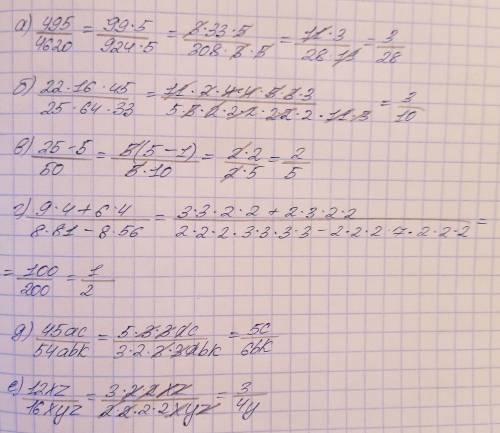 а) 495/4620 = 99·5/924·5 = 3·33·5/308·3·5 = 11·3/28·11 = 3/28
б) 22·16·45/25·64·33 = 11·2·4·4·5·3·3/5·5·2·2·2·2·2·2·11·3 = 3/10
в) 25-5/50 = 5(5-1)/5·10 = 2·2/2·5 = 2/5
г) 9·4+6·4/8·81-8·56 = 3·3·2·2+2·3·2·2/2·2·2·3·3·3·3-2·2·2·7·2·2·2 =
= 100/200 = 1/2
д) 45ac/54abk = 5·3·3ac/3·2·3·3abk = 5c/6bk
е) 12xz/16xyz = 3·2·2xz/2·2·2·2xyz = 3/4y